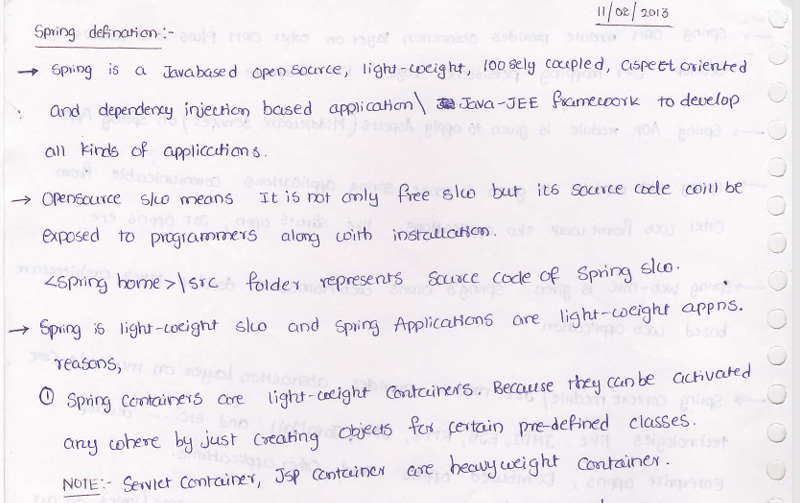 11/02/2013
Spring defination:-
→ Spring is a Javabased open source, light-weight, loosely coupled, aspect oriented
and dependency injection based application\ Java-JEE framework to develop
all kinds of applications.
→ Opensource s/w means It is not only free s/w but its source code will be
exposed to programmers along with installation.
<spring home>\src folder represents source code of Spring s/w.
→ Spring is light-weight s/w and Spring Applications are light-weight appns.
reasons,
① Spring Containers are light-weight Containers. Because they can be activated
any where by just creating objects for certain pre-defined classes.
NOTE:- Servlet Container, Jsp container are heavyweight container.